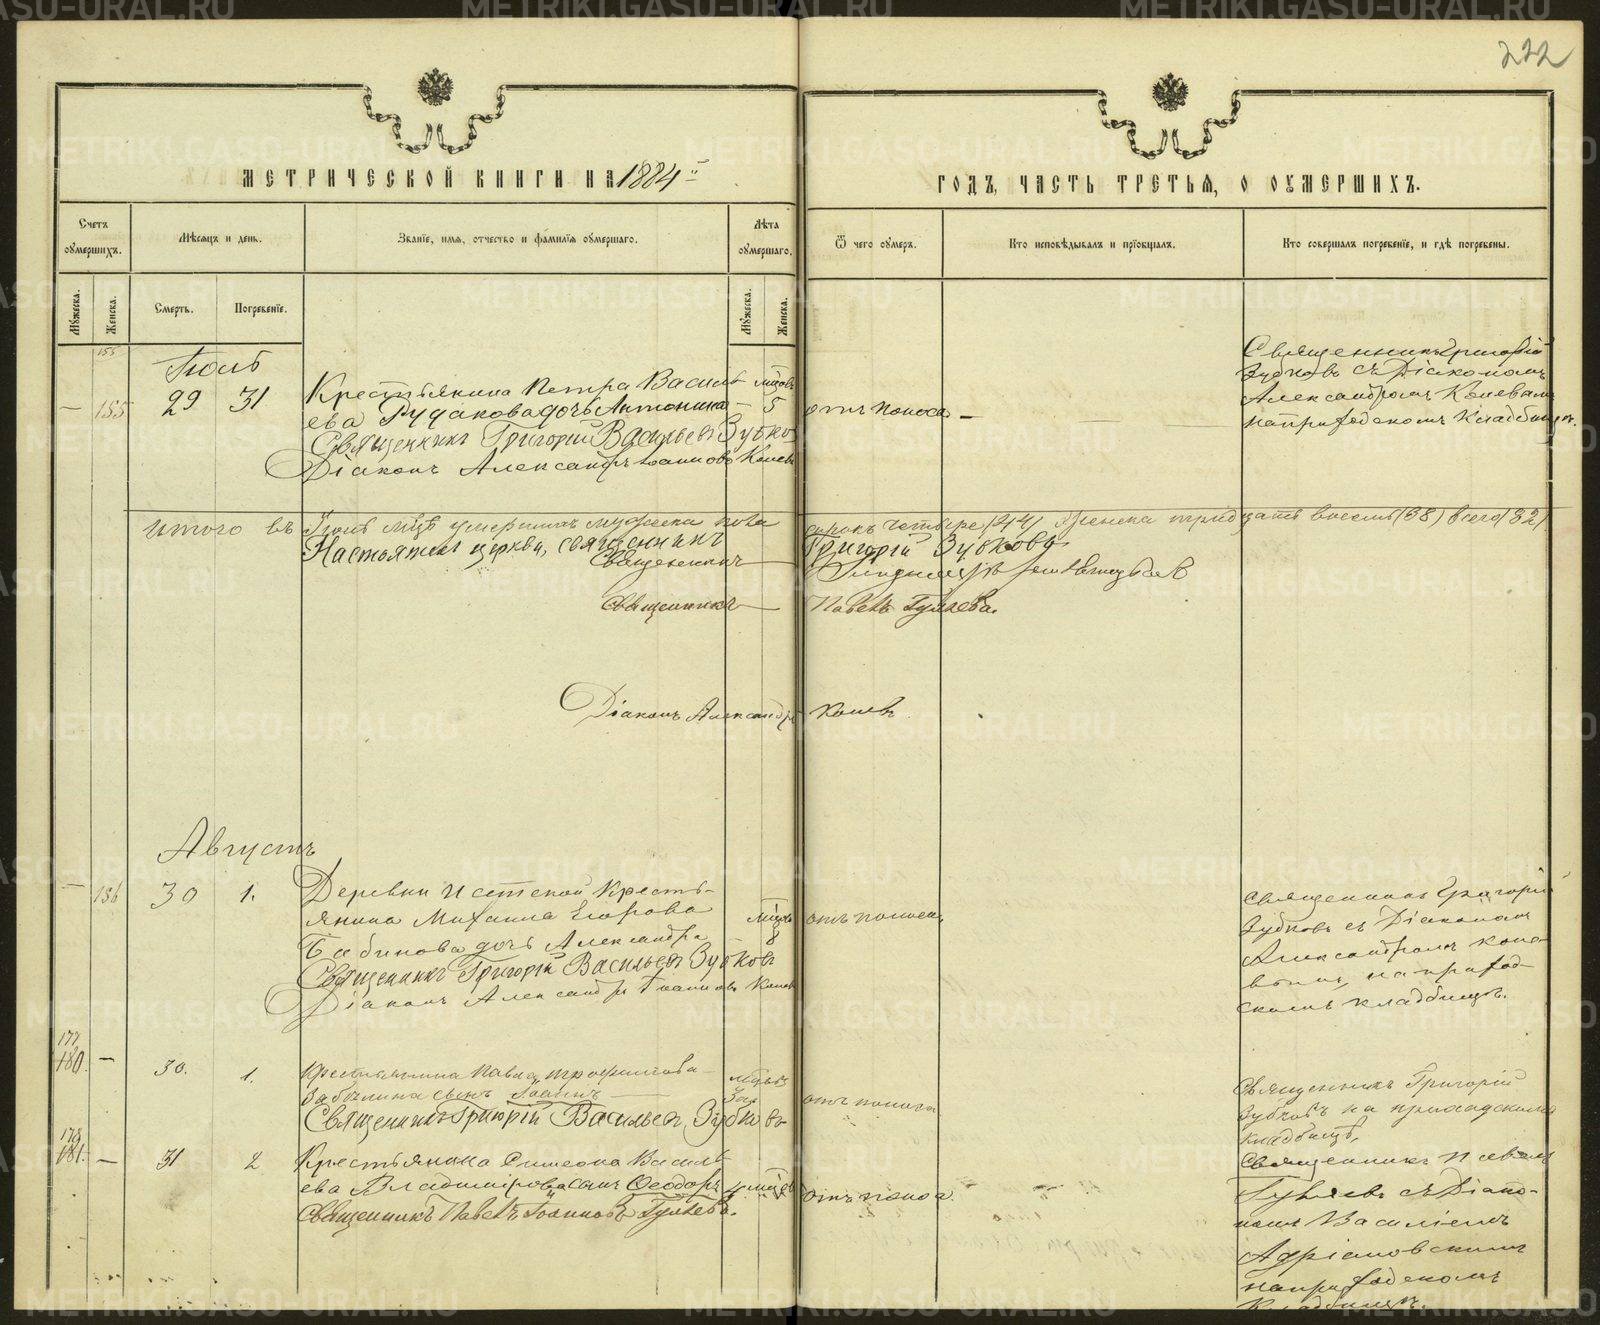 222
МЕТРИЧЕСКОЙ КНИГИ НА 1884 ГОДЪ, ЧАСТЬ ТРЕТЬЯ, О ОУМЕРШИХЪ.
Счетъ оумершихъ.
Мѣсяцъ и день.
Званіе, имя, отчество и фамилія оумершаго.
Лѣта оумершаго.
Ѿ чего оумеръ.
Кто исповѣдывалъ и пріобщалъ.
Кто совершалъ погребеніе, и гдѣ погребены.
Мужеска.
Женска.
Смерть.
Погребеніе.
Мужеска.
Женска.
155
Іюль
— 155 29 31
Крестьянина Петра Василь-
ева Рудакова дочь Антонина —
Священникъ Григорій Васильевъ Зубко
Діаконъ Александръ Іоанновъ Коневъ
5
отъ поноса —
Священникъ Григорій
Зубковъ съ Діакономъ
Александромъ Коневымъ
на приходскомъ кладбищѣ.
Итого въ Іюлѣ мцѣ умершихъ мужеска пола
сорокъ четыре (44) женска тридцать восемь (38) всего (82)
Настоятель церкви, священникъ Григорій Зубковъ
Священникъ
Священникъ Павелъ Гуляевъ.
Діаконъ Александръ Коневъ
Августъ
— 156 30 1.
Деревни Истской Кресть-
янина Михаила Егорова
Бабинова дочь Александра
Священникъ Григорій Васильевъ Зубковъ
Діаконъ Александръ Іоанновъ Коневъ
8
отъ поноса
Священникъ Григорій
Зубковъ съ Діакономъ
Александромъ Коне-
вымъ, на приход-
скомъ кладбищѣ.
177
180. — 30. 1.
Крестьянина Павла Трофимова
сынъ Іоаннъ
Священникъ Григорій Васильевъ Зубковъ
отъ поноса
Священникъ Григорій
Зубковъ на приходскомъ
кладбищѣ.
178
181. — 31 2
Крестьянина Симеона Василь-
ева Владимірова сынъ Ѳеодоръ
Священникъ Павелъ Іоанновъ Гуляевъ.
4
отъ поноса
Священникъ Павелъ
Гуляевъ съ Діако-
номъ Василіемъ
Адріановскимъ
на приходскомъ
кладбищѣ.
METRIKI.GASO-URAL.RU